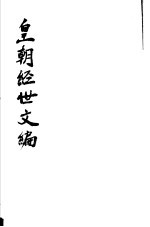 皇朝经世文编